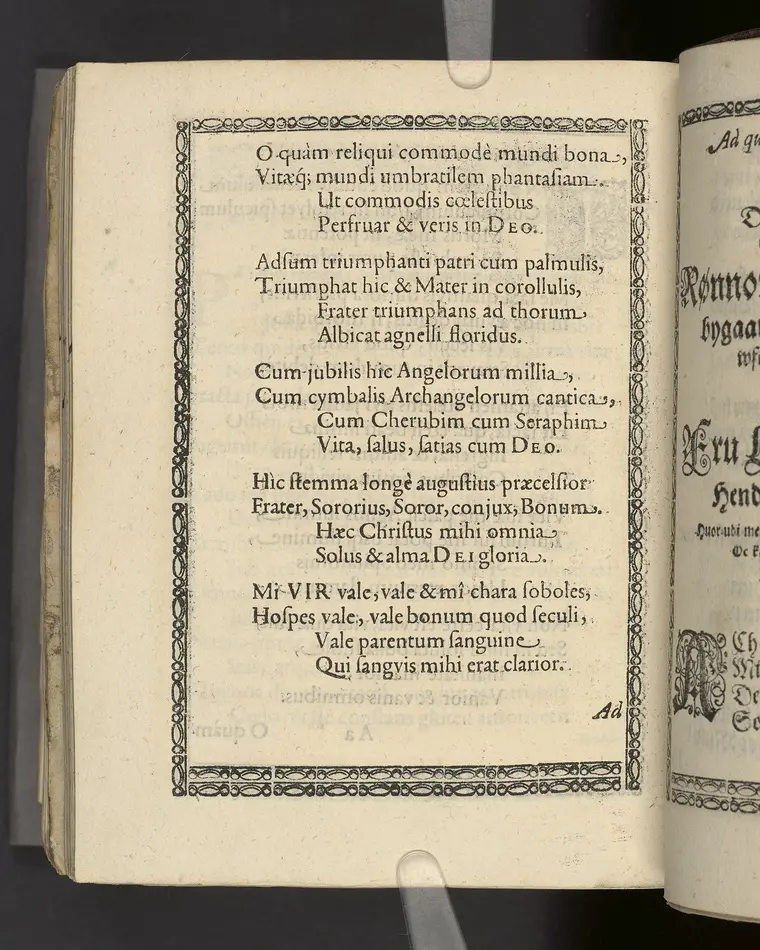 O quàm reliqui commodè mundi bona,
Vitæq; mundi umbratilem phantasiam.
Ut commodis cœlestibus
Perfruar & veris in DEO.
Adsum triumphanti patri cum palmulis,
Triumphat hic & Mater in corollulis,
Frater triumphans ad thorum
Albicat agnelli floridus.
Cum jubilis hîc Angelorum millia,
Cum cymbalis Archangelorum cantica,
Cum Cherubim cum Seraphim
Vita, salus, satias cum DEO.
Hìc stemma longè augustius præcelsior
Frater, Sororius, Soror, conjux, Bonum.
Hæc Christus mihi omnia
Solus & alma DEI gloria.
Mi VIR vale, vale & mî chara soboles,
Hospes vale, vale bonum quod seculi,
Vale parentum sanguine
Qui sangvis mihi erat clarior.
Ad
Ad qu
Rønno
bygaa
Fru L
Hend
Huor ubi me
Oc k
ACh
Mt
De
So